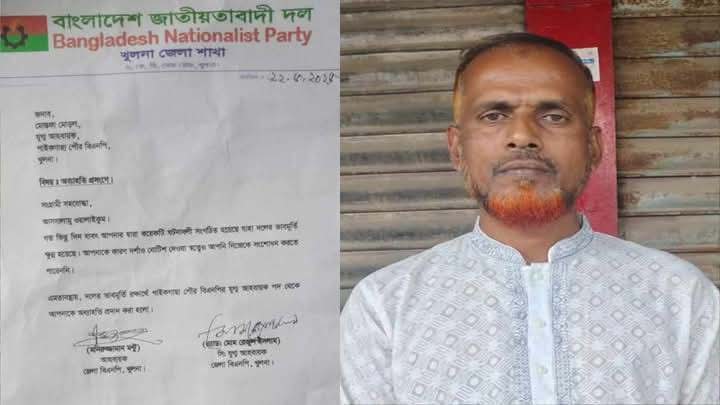 বাংলাদেশ জাতীয়তাবাদী দল
Bangladesh Nationalist Party
খুলনা জেলা শাখা
জনাব,
মোস্তফা মোড়ল,
যুগ্ম আহবায়ক,
পাইকগাছা পৌর বিএনপি,
খুলনা।
বিষয় : অব্যাহতি প্রসংগে।
সংগ্রামী সহযোদ্ধা,
আসসালামু ওয়ালাইকুম।
গত কিছু দিন যাবৎ আপনার দ্বারা কয়েকটি ঘটনাবলী সংগঠিত হয়েছে যাহা দলের ভাবমূর্তি
ক্ষুন্ন হয়েছে। আপনাকে কারণ দর্শাও নোটিশ দেওয়া স্বত্বেও আপনি নিজেকে সংশোধন করতে
পারেননি।
এমতাবস্থায়, দলের ভাবমূর্তি রক্ষার্থে পাইকগাছা পৌর বিএনপির যুগ্ম আহবায়ক পদ থেকে
আপনাকে অব্যাহতি প্রদান করা হলো।
(মনিরুজ্জামান মন্টু)
আহবায়ক
জেলা বিএনপি, খুলনা।
(এ্যাড: মোম রেজাউল ইসলাম)
সি: যুগ্ম আহবায়ক
জেলা বিএনপি, খুলনা।